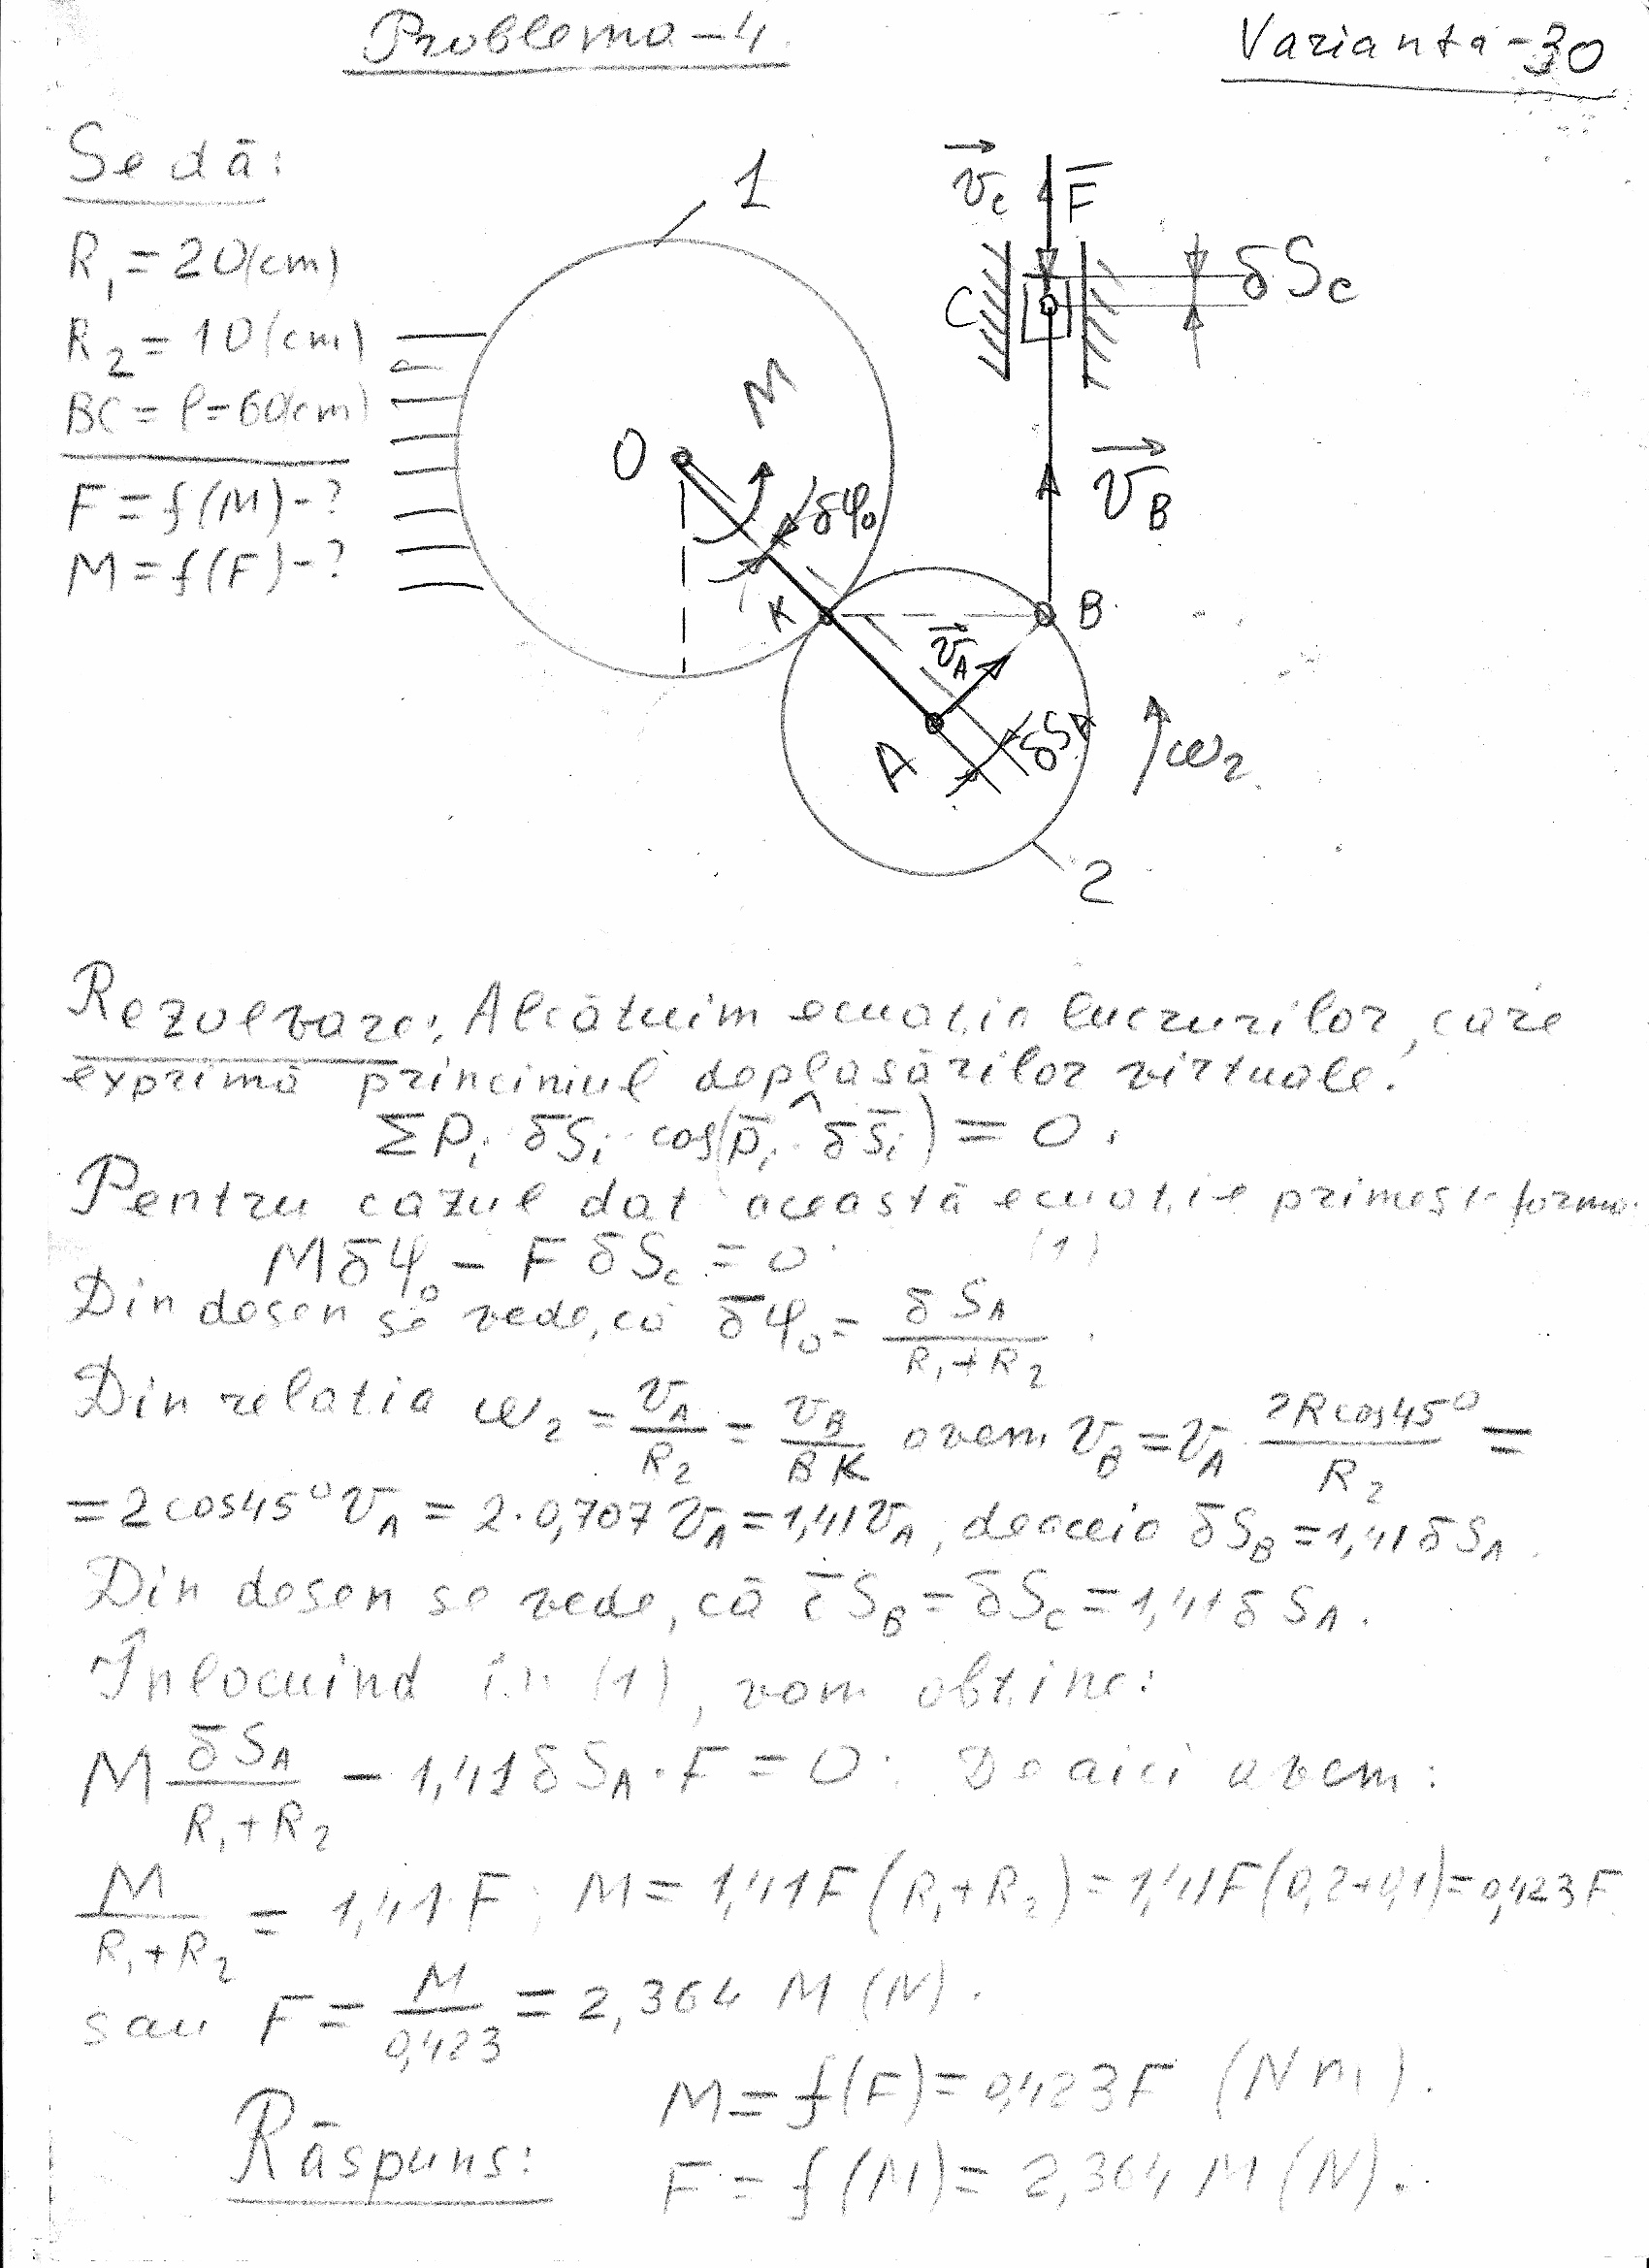 Problema-4.
Varianta-30
Se dă:
R₁ = 20(cm)
R₂ = 10(cm)
BC = l = 60(cm)
F = f(M)-?
M = f(F)-?
1
v⃗c F̅
C δSc
M
O δφ₀
v⃗B
K B
v⃗A
A δSA
ω₂
2
Rezolvare: Alcătuim ecuația lucrurilor, care
exprimă principiul deplasărilor virtuale.
ΣPᵢ δSᵢ cos(p̅ᵢ ^ δS̅ᵢ) = 0.
Pentru cazul dat această ecuație primește forma:
Mδφ₀ - F δSc = 0 (1)
Din desen se vede, că δφ₀ = δSA / (R₁+R₂).
Din relația ω₂ = vA/R₂ = vB/BK avem vB = vA 2Rcos45°/R₂ =
= 2cos45° vA = 2·0,707 vA = 1,41vA, deaceia δSB = 1,41δSA.
Din desen se vede, că δSB = δSc = 1,41δSA.
Înlocuind in (1), vom obține:
M δSA/(R₁+R₂) - 1,41δSA·F = 0. De aici avem:
M/(R₁+R₂) = 1,41·F; M = 1,41F(R₁+R₂) = 1,41F(0,2+0,1) = 0,423F
sau F = M/0,423 = 2,364 M (N).
M = f(F) = 0,423F (Nm).
Răspuns:
F = f(M) = 2,364 M (N).